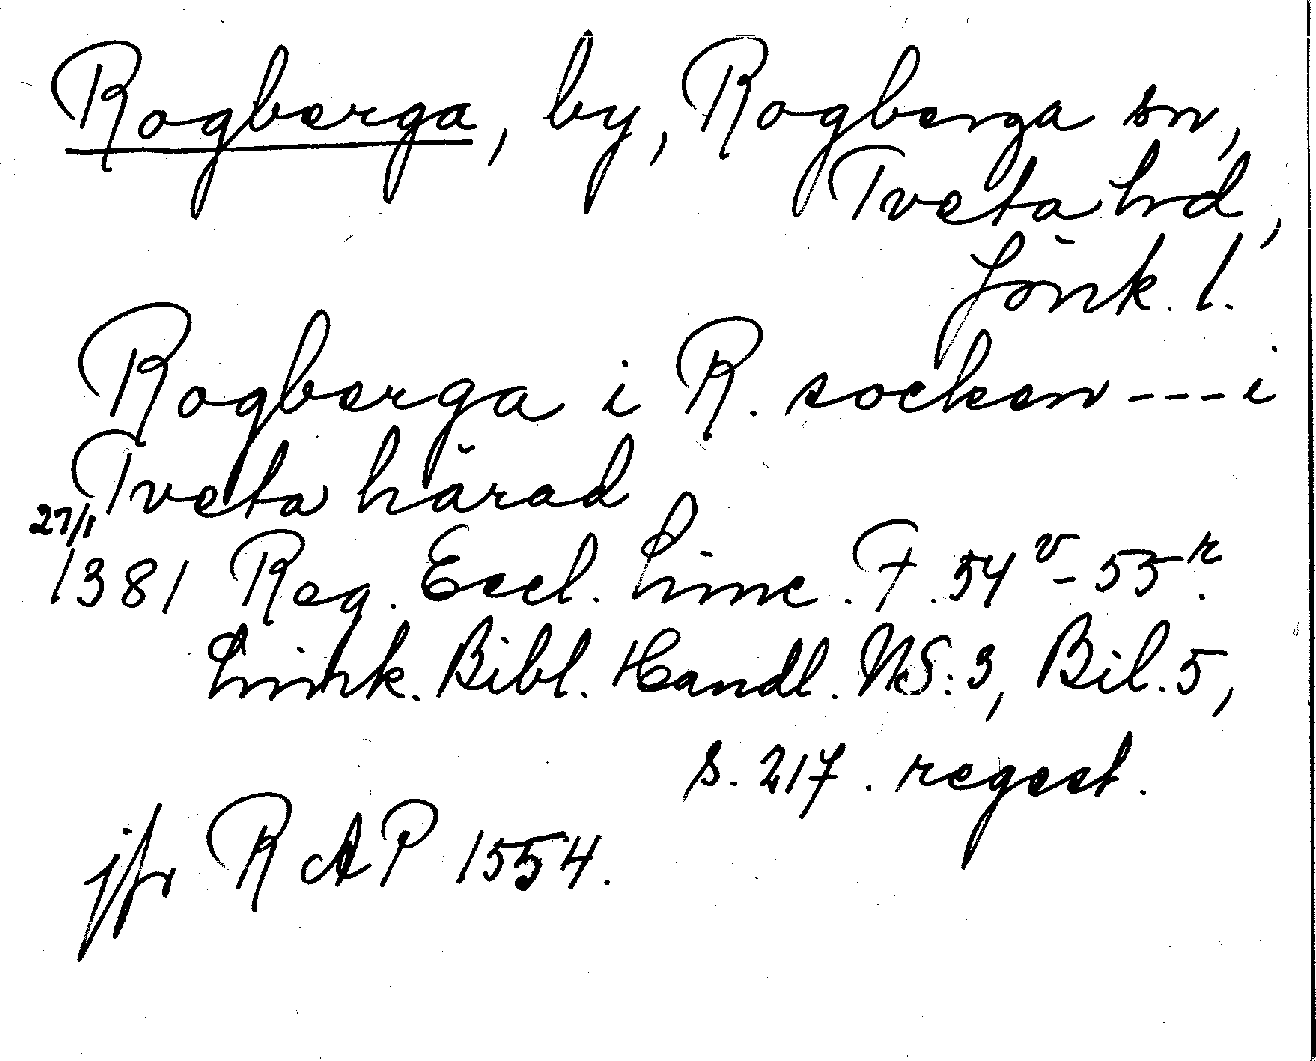 Rogberga, by, Rogberga sn,
Tveta hd,
Jönk. l.
Rogberga i R. socken --- i
Tveta härad
27/1
1381 Reg. Eccl. Linc. F. 54 v - 55 r.
Link. Bibl. Handl. NS: 3, Bil. 5,
s. 217. regest.
jfr RAP 1554.